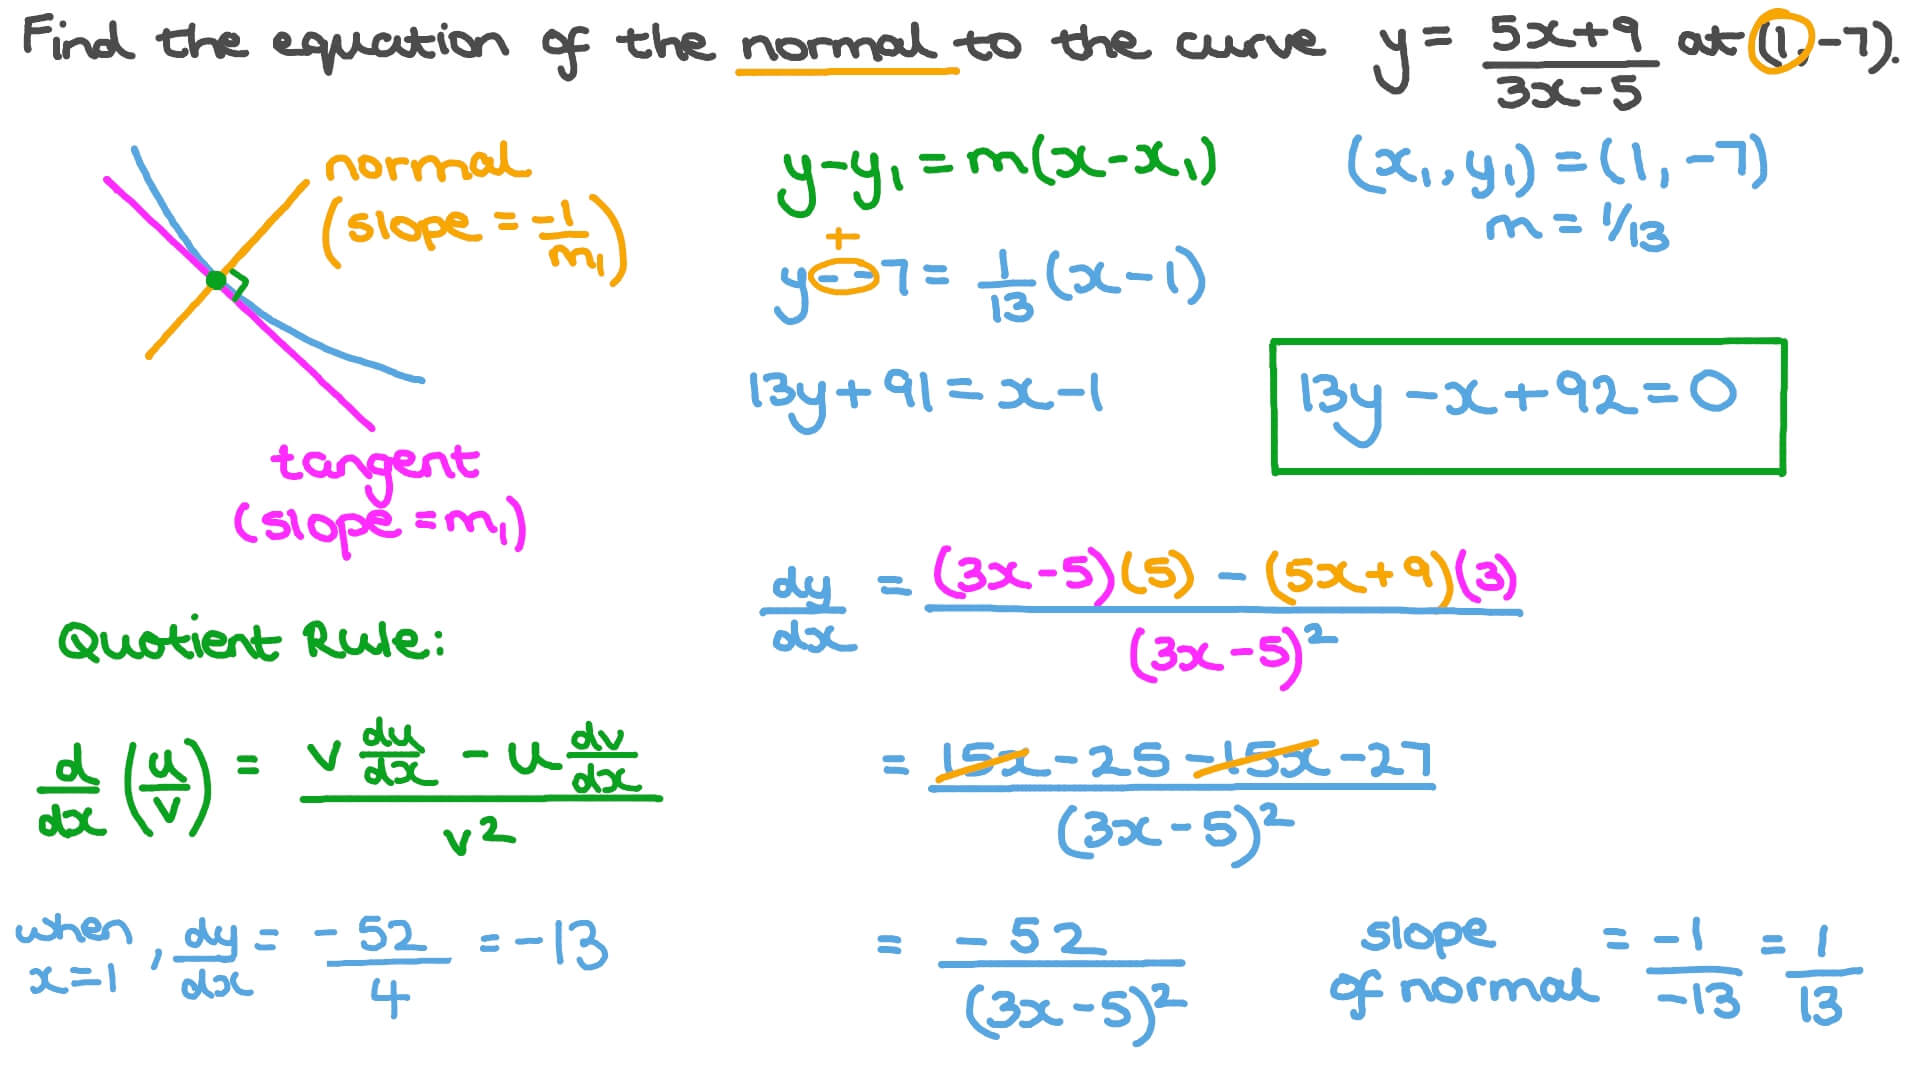 Find the equation of the normal to the curve y = (5x+9)/(3x-5) at (1,-7).
normal
(slope = -1/m₁)
tangent
(slope = m₁)
y-y₁ = m(x-x₁)
(x₁, y₁) = (1, -7)
m = 1/13
+
y--7 = 1/13 (x-1)
13y+91 = x-1
13y-x+92=0
Quotient Rule:
d/dx (u/v) = (v du/dx - u dv/dx)/v²
when x=1, dy/dx = -52/4 = -13
dy/dx = ((3x-5)(5) - (5x+9)(3))/(3x-5)²
= (15x-25-15x-27)/(3x-5)²
= -52/(3x-5)²
slope of normal = -1/-13 = 1/13